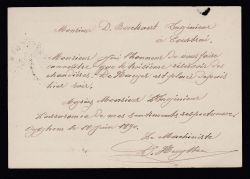 Monsieur D. Burckaert Ingénieur
à Courtrai.
Monsieur j'ai l'honneur de vous faire
connaître que le troisième
chaudières De Naeyer est placé depuis
hier soir.
Agréez Monsieur l'Ingénieur
l'assurance de mes sentiments respectueux
le 10 Juin 1890.
Le Machiniste